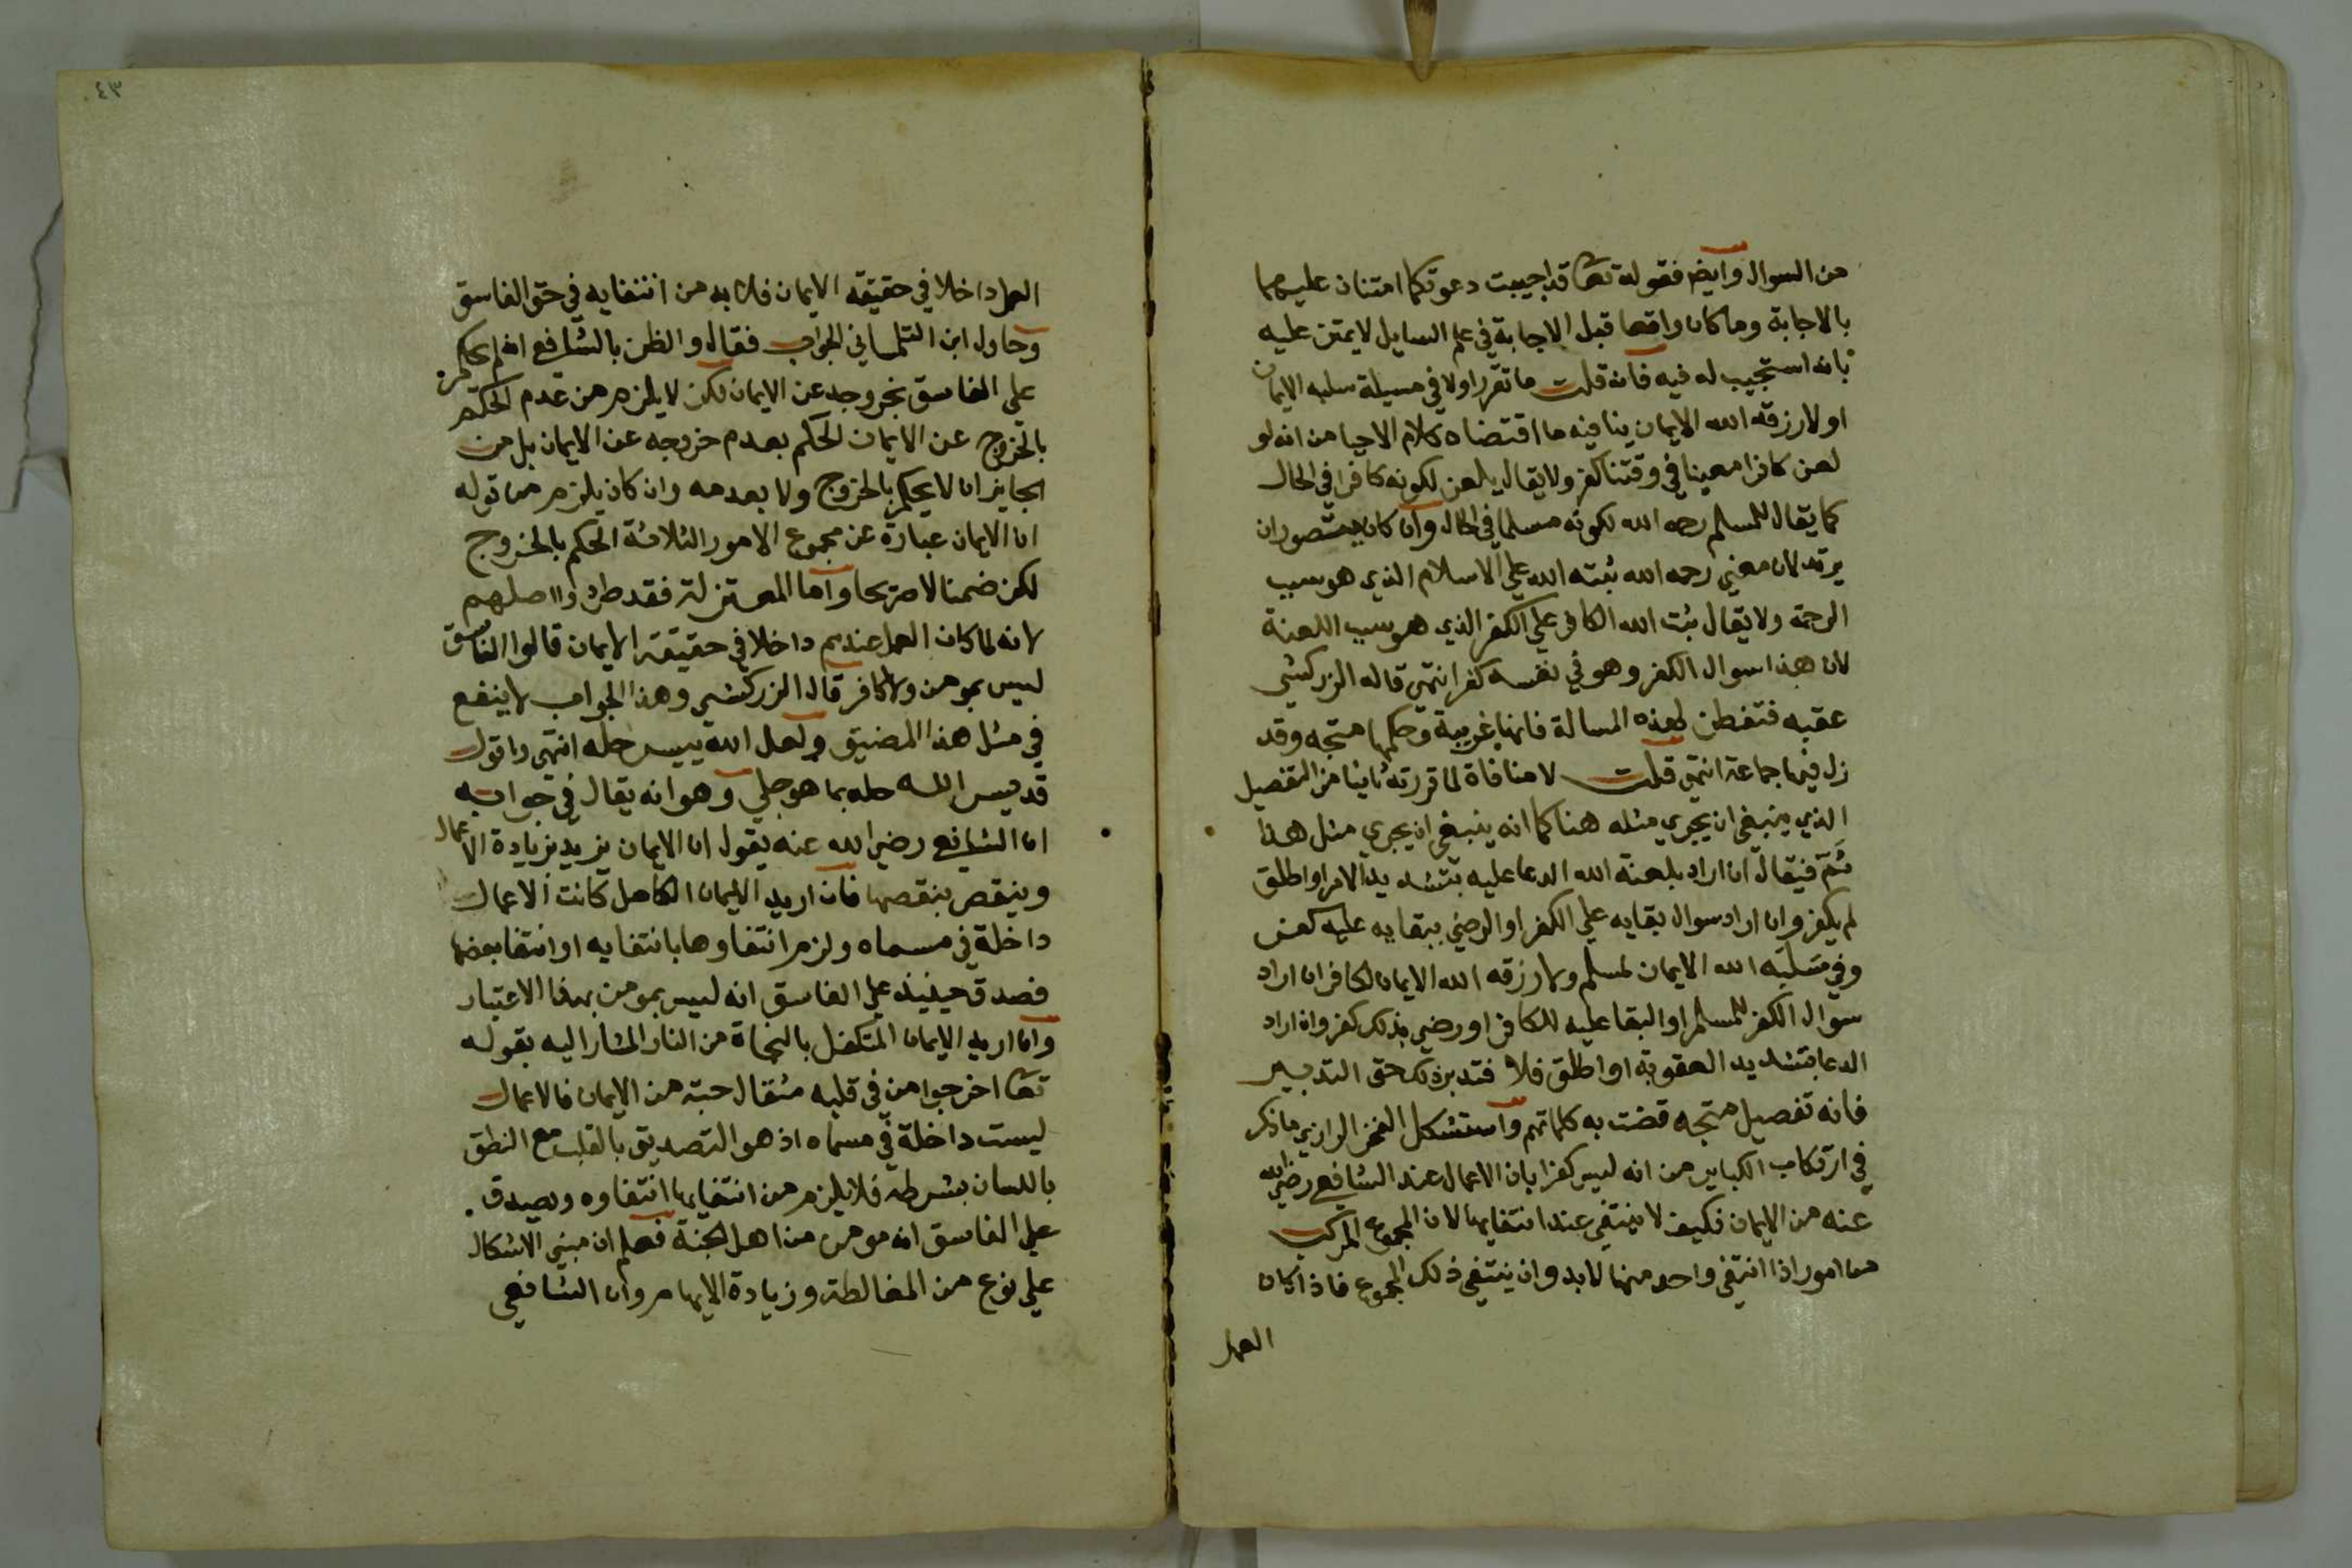 من السوال وايضا فقوله تعا قد اجيبت دعوتكما امتنان عليهما
بالاجابة وما كان واقعا قبل الاجابة في علم السايل لا يمتن عليه
بانه استجيب له فيه فان قلت ما تقرر اولا في مسيلة سلبه الايمان
او لا رزقه الله الايمان ينافيه ما اقتضاه كلام الاحيا من انه لو
لعن كافرا معينا في وقتنا كفر ولا يقال يلعن لكونه كافرا في الحال
كما يقال للمسلم رحمه الله لكونه مسلما في الحال وان كان يتصور ان
يرتد لان معني رحمه الله ثبته الله علي الاسلام الذي هو سبب
الرحمة ولا يقال ثبت الله الكافر علي الكفر الذي هو سبب اللعنة
لان هذا سوال الكفر وهو في نفسه كفر انتهي قال الزركشي
عقبه فتفطن لهذه المسالة فانها غريبة وحكمها متجه وقد
زل فيها جماعة انتهي قلت لا منافاة لما قررته ثانيا من التفصيل
الذي ينبغي ان يجري مثله هنا كما انه ينبغي ان يجري مثل هذا
ثم فيقال ان اراد بلعنة الله الدعا عليه بتشديد الامر او اطلق
لم يكفر وان اراد سوال بقايه علي الكفر او الرضي ببقايه عليه كفر
وفي سلبه الله الايمان لمسلم ولا رزقه الله الايمان لكافر ان اراد
سوال الكفر للمسلم او البقا عليه للكافر او رضي بذلك كفر وان اراد
الدعا بتشديد العقوبة او اطلق فلا فتدبر ذلك حق التدبير
فانه تفصيل متجه قضت به كلماتهم واستشكل الفخر الرازي ما ذكر
في ارتكاب الكباير من انه ليس كفرا بان الاعمال عند الشافعي رضي الله
عنه من الايمان فكيف لا ينتفي عند انتفايها لان المجموع المركب
من امور اذا انتفي واحد منها لا بد وان ينتفي ذلك المجموع فاذا كان
العمل
٤٣
العمل داخلا في حقيقه الايمان فلا بد من انتفايه في حق الفاسق
وحاول ابن التلمساني الجواب فقال والظن بالشافعي انه لم يحكم
علي الفاسق بخروجه عن الايمان لكن لا يلزم من عدم الحكم
بالخروج عن الايمان الحكم بعدم خروجه عن الايمان بل من
الجايز ان لا يحكم بالخروج ولا بعدمه وان كان يلزم من قوله
ان الايمان عبارة عن مجموع الامور الثلاثة الحكم بالخروج
لكن ضمنا لا صريحا واما المعتزلة فقد طردوا اصلهم
لانه لما كان العمل عندهم داخلا في حقيقة الايمان قالوا الفاسق
ليس بمومن ولا كافر قال الزركشي وهذا الجواب لا ينفع
في مثل هذا المضيق ولعل الله ييسر حله انتهي واقول
قد يسر الله حله بما هو جلي وهو انه يقال في جوابه
ان الشافعي رضي الله عنه يقول ان الايمان يزيد بزيادة الاعمال
وينقص بنقصها فان اريد الايمان الكامل كانت الاعمال
داخلة في مسماه ولزم انتفاوها بانتفايه او انتفا بعضها
فصدق حينيذ علي الفاسق انه ليس بمومن بهذا الاعتبار
وان اريد الايمان المتكفل بالنجاة من النار المشار اليه بقوله
تعا اخرجوا من في قلبه مثقال حبة من الايمان فالاعمال
ليست داخلة في مسماه اذ هو التصديق بالقلب مع النطق
باللسان بشرطه فلا يلزم من انتفايها انتفاوه ويصدق
علي الفاسق انه مومن من اهل الجنة فعلم ان مبني الاشكال
علي نوع من المغالطة وزيادة الايهام وان الشافعي